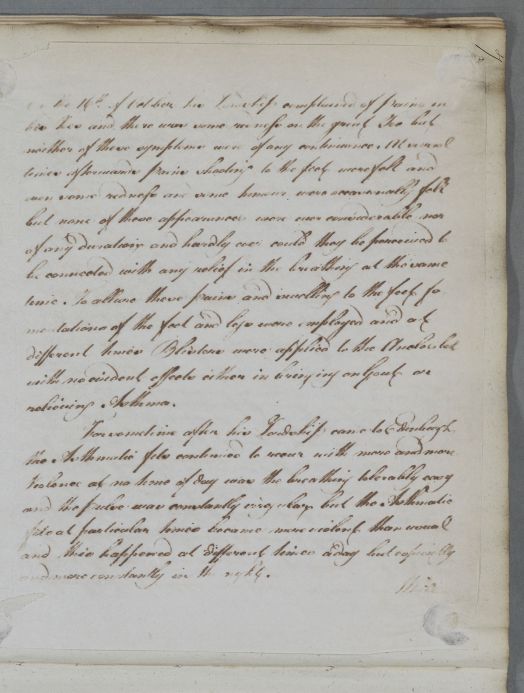 the 16th. of October his Lordship complained of pains in
his Toe and there was some redness on the great Toe but
neither of these symptoms were of any continuance. At several
times afterwards pains shooting to the feet were felt and
even some redness and some tumour were occasionally felt
but none of these appearances were ever considerable nor
of any duration and hardly ever could they be perceived to
be connected with any relief in the breathing at the same
time. To allure these pains and swelling to the feet fo
mentations of the feet and legs were employed and at
different times Blisters were applied to the Ancles but
with no evident effects either in bringing on Gout or
relieving Asthma.
For some time after his Lordship came to Edinburgh
the Asthmatic fits continued to recur with more and more
Violence at no time of day was the breathing tolerably easy
and the pulse was constantly irregular, but the Asthmatic
fits at particular times became more violent than usual
and this happened at different times a day but especially
and more constantly in the night.